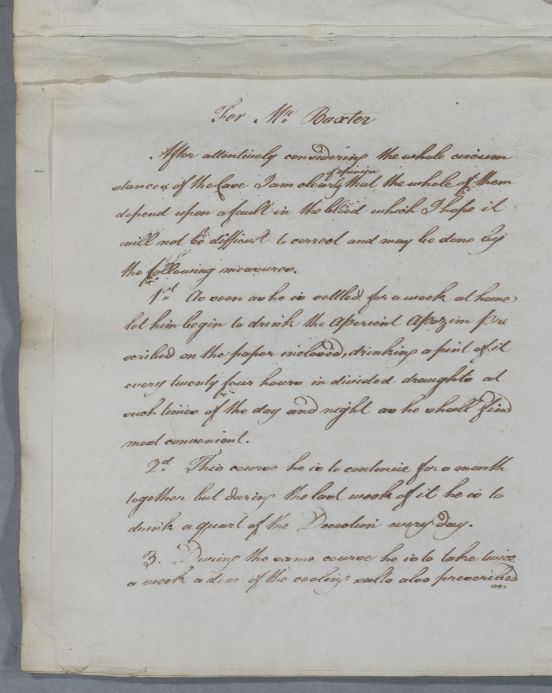 For Mr. Baxter
After attentively considering the whole circum
of opinion
stances of the Case I am clearly that the whole of them
depend upon a fault in the blood which I hope it
will not be difficult to correct and may be done by
the following measures.
1st. As soon as he is settled for a week at home,
let him begin to drink the Aperient Apozim pre
scribed on the paper inclosed, drinking a pint of it
every twenty four hours in divided draughts at
such times of the day and night as he shall find
most convenient.
2d. This course he is to contenue for a month
together but during the last week of it he is to
drink a quart of the Decoction every day.
3. During the same course he is to take twice
a week a dose of the cooling salts also prescribed
on